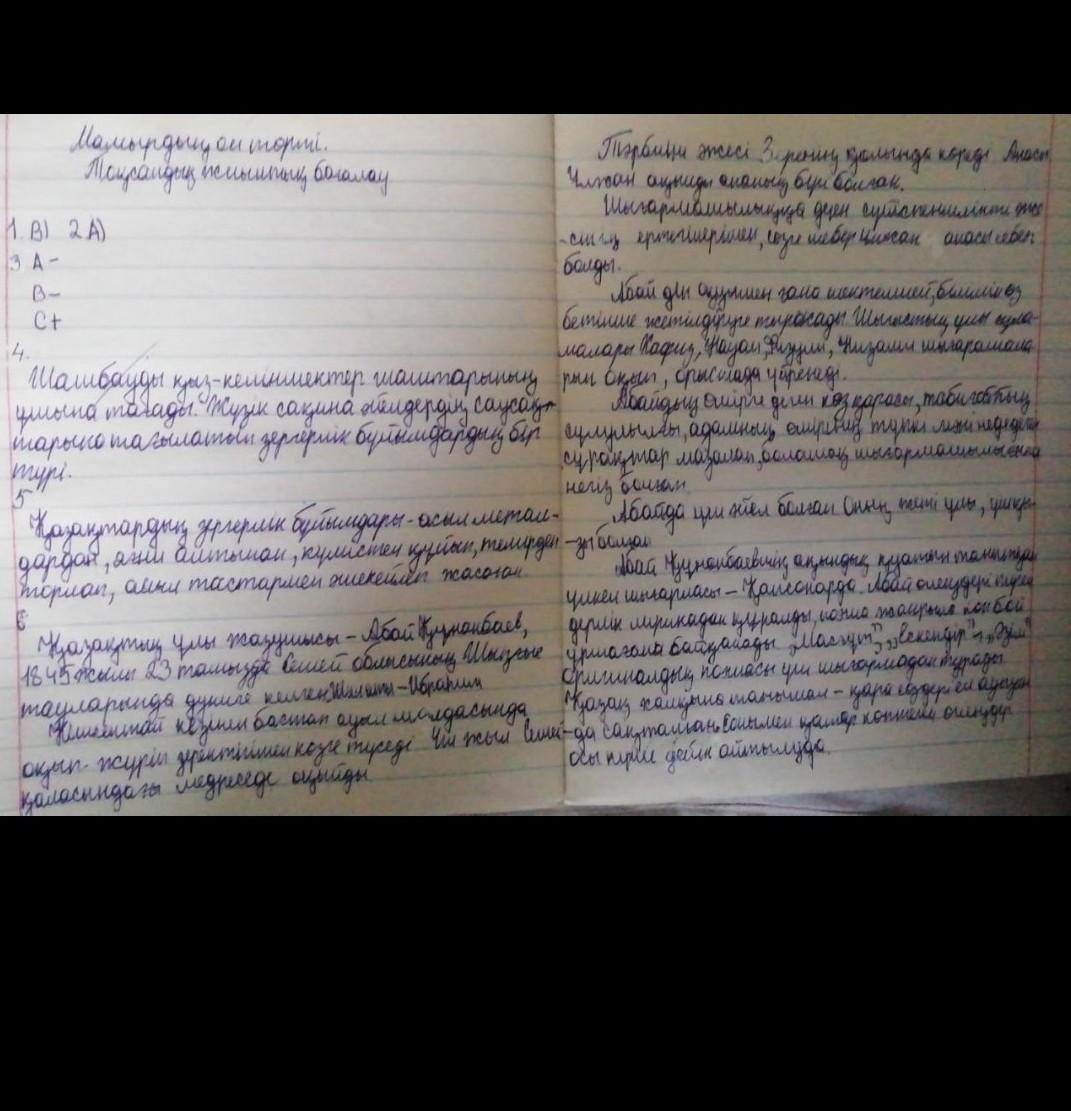 Мамырдың он төрті.
Тоқсандық жиынтық бағалау
1. В) 2 А)
3 А –
В –
С +
4.
Шашбауды қыз-келіншектер шаштарының
ұшына тағады. Жүзік сақина әйелдердің саусақ-
тарына тағылатын зергерлік бұйымдардың бір
түрі.
5
Қазақтардың зергерлік бұйымдары - асыл метал-
дардан, яғни алтыннан, күмістен құйып, темірден
торлап, асыл тастармен әшекейлеп жасаған.
6
Қазақтың ұлы жазушысы – Абай Құнанбаев,
1845 жылы 23 тамызда Семей облысының Шыңғыс
тауларында дүниеге келген. Шын аты – Ибрагим
Кішкентай кезінен бастап ауыл молдасында
оқып жүріп зеректігімен көзге түседі Үш жыл Семей
қаласындағы медреседе оқыйды
Тәрбиені әжесі Зеренің қолында көреді Анасы
Ұлжан ақылды ананың бірі болған.
Шығармашылыққа деген сүйіспеншілікті әже
-сінің ертегілерімен, сөзге шебер Ұлжан анасы себеп
болды.
Абай діни оқумен ғана шектелмей, білімін өз
бетінше жетілдіруге тырысады Шығыстың ұлы ғұла-
малары Хафиз, Науаи, Физули, Низами шығармала
рын оқып, орысшада үйренеді.
Абайдың өмірге деген көз қарасы, табиғаттың
сұлулығы, адамның өмірінің түпкі мәні неде деген
сұрақтар мазалап, болашақ шығармашылығына
негіз болған
Абайда үш әйел болған Оның жеті ұлы, үш қы
-зы болған
Абай Құнанбаевтің ақындық қуатын танытқан
үлкен шығармасы – Қансонарда. Абай өлеңдері түгел
дерлік лирикадан құралды, поэма жанрына көп бой
ұрмағаны байқалады „Масғұт", „Ескендір", „Әзім"
оригиналдық поэмасы үш шығармадан тұрады
Қазақ халқына танылған – қара сөздері ел аузын
-да сақталған Сонымен қатар көптеген өлеңдер
осы күнге дейін айтылуда.